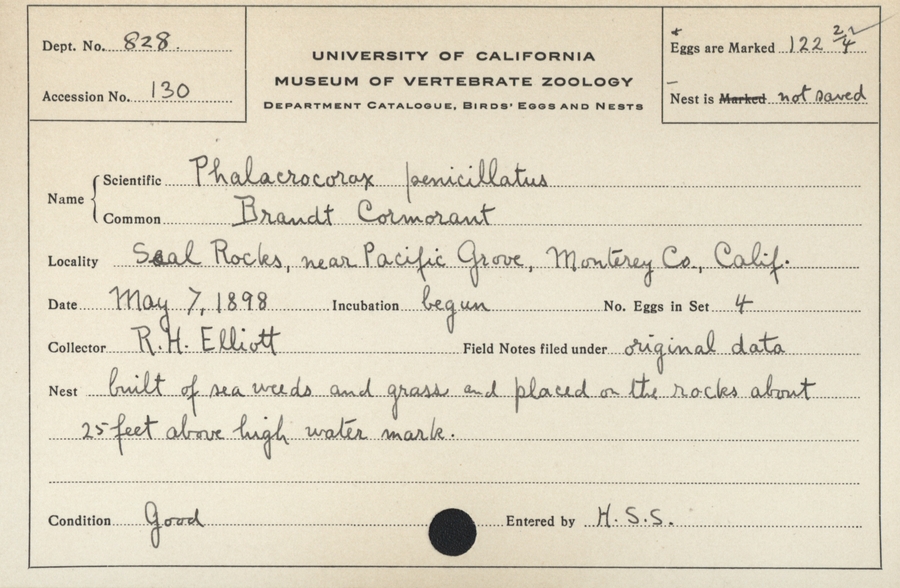 Dept. No. 828.
Accession No. 130
UNIVERSITY OF CALIFORNIA
MUSEUM OF VERTEBRATE ZOOLOGY
DEPARTMENT CATALOGUE, BIRDS' EGGS AND NESTS
Eggs are Marked 122 2/4
Nest is Marked not saved
Name
Scientific Phalacrocorax penicillatus
Common Brandt Cormorant
Locality Seal Rocks, near Pacific Grove, Monterey Co., Calif.
Date May 7, 1898 Incubation begun No. Eggs in Set 4
Collector R.H. Elliott Field Notes filed under original data
Nest built of sea weeds and grass and placed on the rocks about
25 feet above high water mark.
Condition Good Entered by H.S.S.